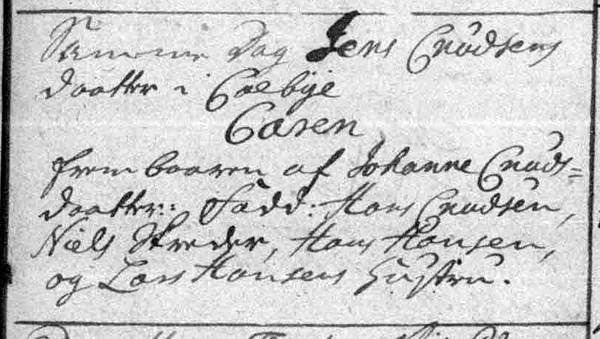 Samme Dag Jens Cnudsens
daatter i Colbye
Caren
frembaaren af Johanne Cnuds=
daatter: Fadd: Hans Cnudsen,
Niels Skreder, Hans Hansen,
og Lars Hansens Hustru.